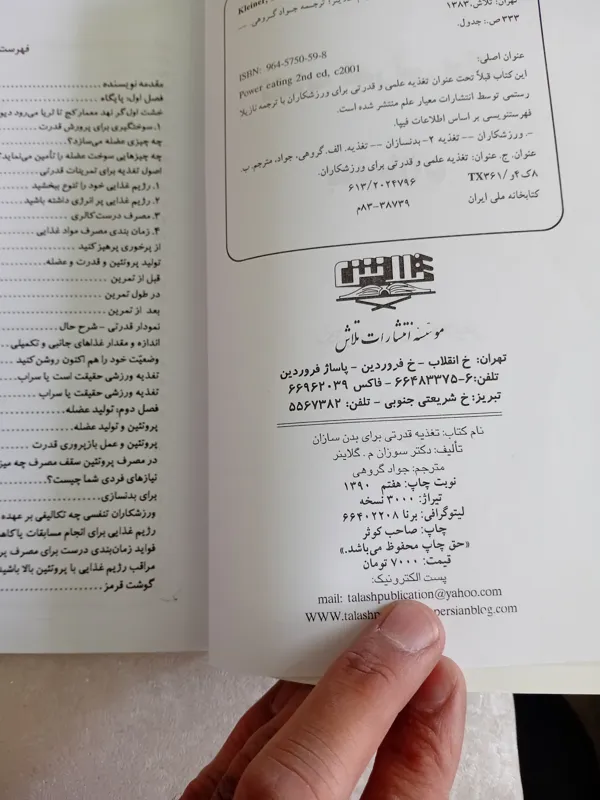 Kleiner,
تهران: تلاش، ۱۳۸۳.
۳۳۳ ص.: جدول.
ISBN: 964-5750-59-8
عنوان اصلی:
Power eating 2nd ed, c2001
این کتاب قبلاً تحت عنوان تغذیه علمی و قدرتی برای ورزشکاران با ترجمه نازیلا
رستمی توسط انتشارات معیار علم منتشر شده است.
فهرستنویسی بر اساس اطلاعات فیپا.
۱- ورزشکاران -- تغذیه ۲- بدنسازان -- تغذیه. الف. گروهی، جواد، مترجم. ب.
عنوان. ج. عنوان: تغذیه علمی و قدرتی برای ورزشکاران.
۶۱۳/۲۰۲۴۷۹۶
TX۳۶۱/و ۴ک۸
کتابخانه ملی ایران
۸۳-۳۸۷۳۹م
تلاش
موسسه انتشارات تلاش
تهران: خ انقلاب - خ فروردین - پاساژ فروردین
تلفن: ۶-۶۶۴۸۳۳۷۵ - فاکس ۶۶۹۶۲۰۳۹
تبریز: خ شریعتی جنوبی - تلفن: ۵۵۶۷۳۸۲
نام کتاب: تغذیه قدرتی برای بدن سازان
تألیف: دکتر سوزان م. گلاینر
مترجم: جواد گروهی
نوبت چاپ: هفتم ۱۳۹۰
تیراژ: ۳۰۰۰ نسخه
لیتوگرافی: برنا ۶۶۴۰۲۲۰۸
چاپ: صاحب کوثر
«حق چاپ محفوظ می‌باشد.»
قیمت: ۷۰۰۰ تومان
پست الکترونیک:
mail: talashpublication@yahoo.com
WWW.talash persianblog.com
فهرست
مقدمه نویسنده
فصل اول: پایگاه
خشت اول گر نهد معمار کج تا ثریا می‌رود دیو
۱. سوختگیری برای پرورش قدرت
چه چیزی عضله می‌سازد؟
چه چیزهایی سوخت عضله را تأمین می‌نماید؟
اصول تغذیه برای تمرینات قدرتی
۱. رژیم غذایی خود را تنوع ببخشید
۲. رژیم غذایی پر انرژی داشته باشید
۳. مصرف درست کالری
۴. زمان بندی مصرف مواد غذایی
از پرخوری پرهیز کنید
تولید پروتئین و قدرت و عضله
قبل از تمرین
در طول تمرین
بعد از تمرین
نمودار قدرتی - شرح حال
اندازه و مقدار غذاهای جانبی و تکمیلی
وضعیّت خود را هم اکنون روشن کنید
تغذیه ورزشی حقیقت است یا سراب
تغذیه ورزشی حقیقت یا سراب
فصل دوم: تولید عضله
پروتئین و تولید عضله
پروتئین و عمل بازپروری قدرت
در مصرف پروتئین سقف مصرف چه میز
نیازهای فردی شما چیست؟
برای بدنسازی
ورزشکاران تنفسی چه تکالیفی بر عهده
رژیم غذایی برای انجام مسابقات یا کاهش
فواید زمان‌بندی درست برای مصرف پر
مراقب رژیم غذایی با پروتئین بالا باشید
گوشت قرمز